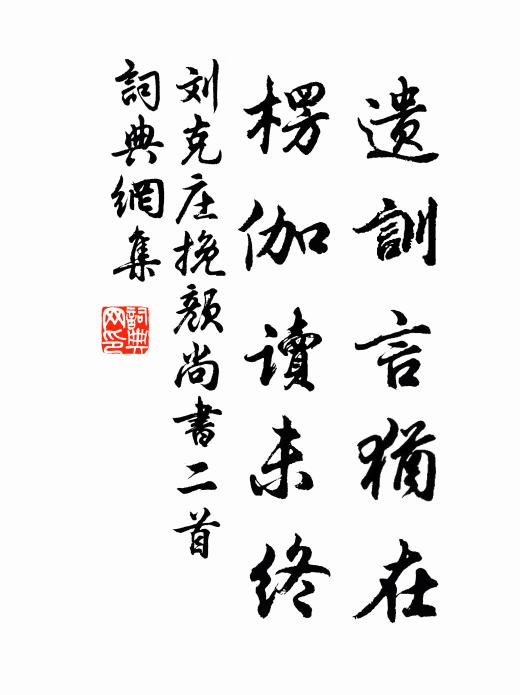 遺訓言猶在
楞伽讀未终
刘克庄挽颜尚書二首
詞典網集
詞典网印